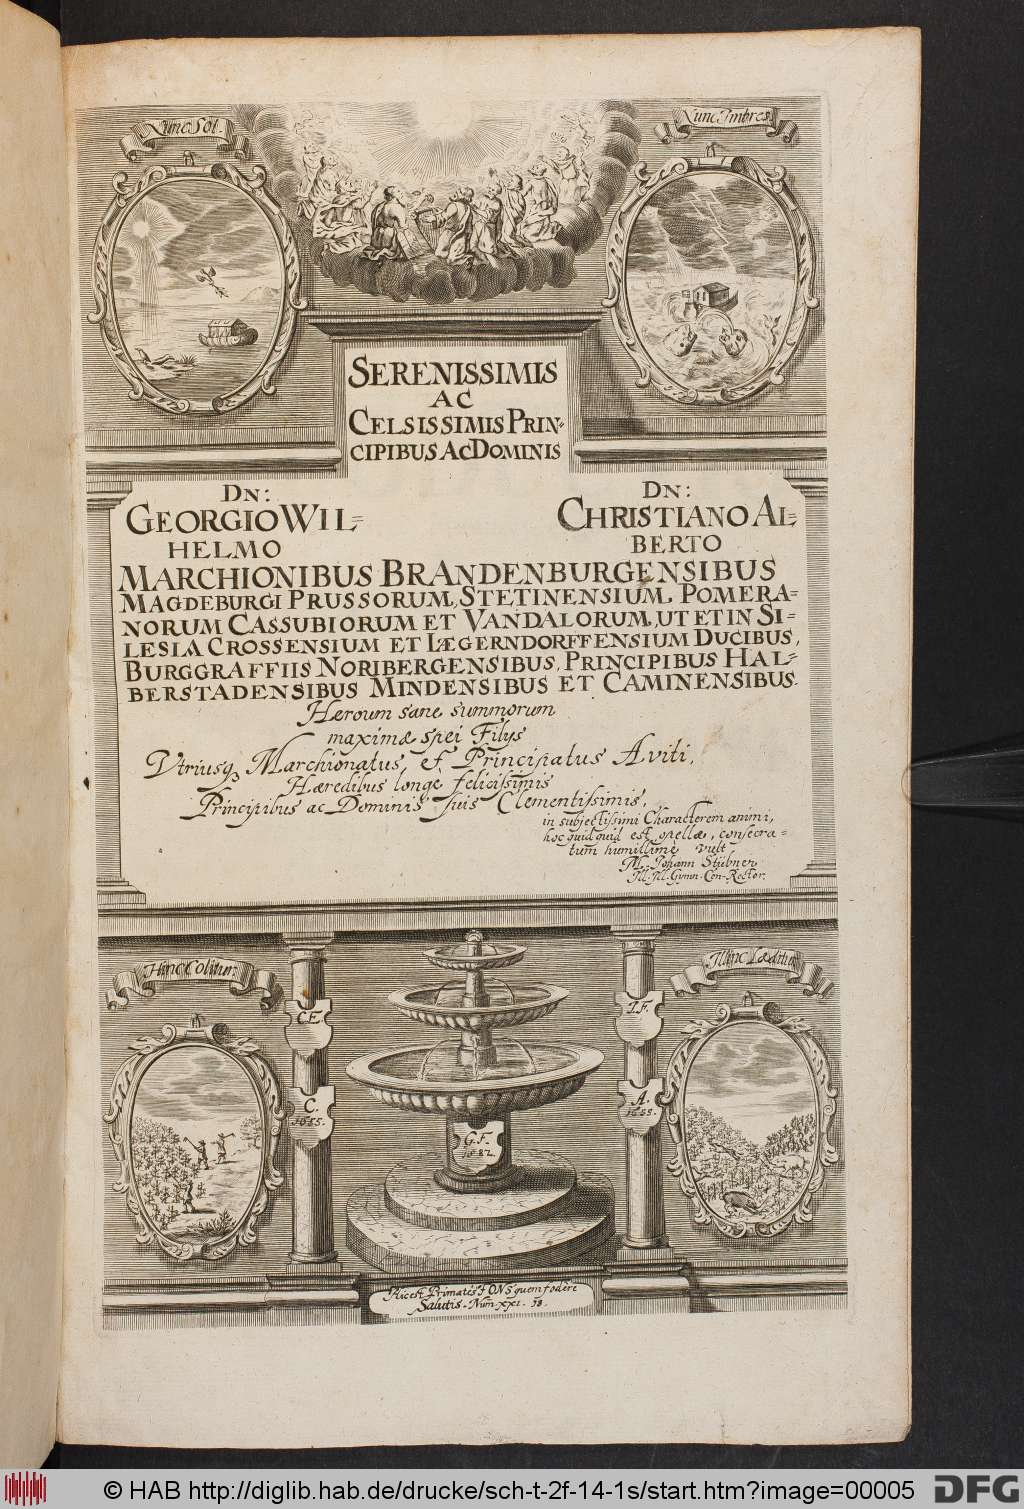 Nunc Sol.
Nunc Imbres.
SERENISSIMIS
AC
CELSISSIMIS PRIN-
CIPIBUS AC DOMINIS
DN:
GEORGIO WIL-
HELMO
DN:
CHRISTIANO AL-
BERTO
MARCHIONIBUS BRANDENBURGENSIBUS
MAGDEBURGI PRUSSORUM, STETINENSIUM, POMERA-
NORUM CASSUBIORUM ET VANDALORUM, UT ET IN SI-
LESIA CROSSENSIUM ET IÆGERNDORFFENSIUM DUCIBUS,
BURGGRAFFIIS NORIBERGENSIBUS, PRINCIPIBUS HAL-
BERSTADENSIBUS MINDENSIBUS ET CAMINENSIBUS.
Heroum sane summorum
maximæ spei Filijs
Utriusq. Marchionatus, et Principatus Aviti,
Hæredibus longè felicissimis
Principibus ac Dominis suis Clementissimis,
in subjectissimi Characterem animi,
hoc quidquid est opellæ, consecra-
tum humillimè vult
M. Johann Stübner
Ill. Ill. Gymn. Con-Rector.
Hinc Colitur
Illinc Læditur
C.E.
I.F.
C.
1655.
A.
1655.
G.F.
1582
Hic est Primates FONS quem fodere
Salutis. Num XXI. 18.
© HAB http://diglib.hab.de/drucke/sch-t-2f-14-1s/start.htm?image=00005
DFG